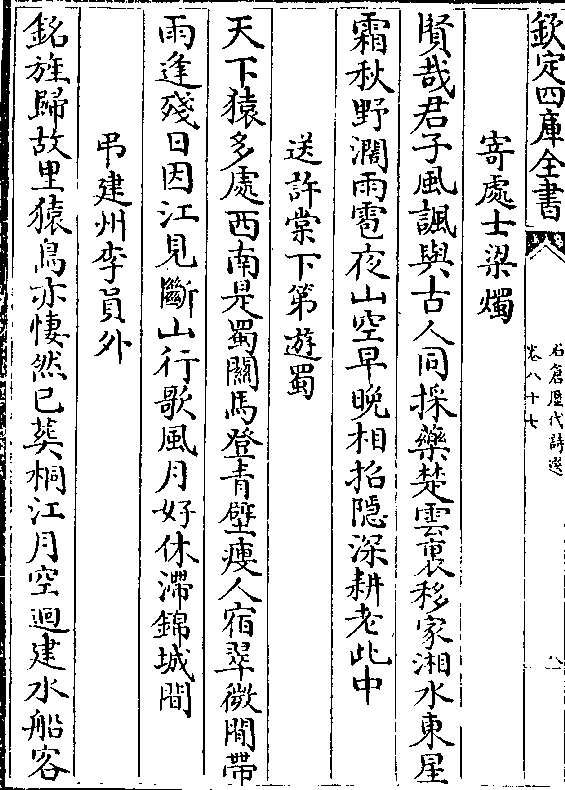 欽定四庫全書
石倉歴代詩選
卷八十七
八
寄處士梁燭
賢哉君子風諷與古人同採藥楚雲裏移家湘水東星
霜秋野濶雨雹夜山空早晚相招隠深耕老此中
送許棠下第遊蜀
天下猿多處西南是蜀關馬登青壁瘦人宿翠微間帶
雨逢殘日因江見斷山行歌風月好休滯錦城間
弔建州李員外
銘旌歸故里猿鳥亦悽然已葬桐江月空迴建水船客